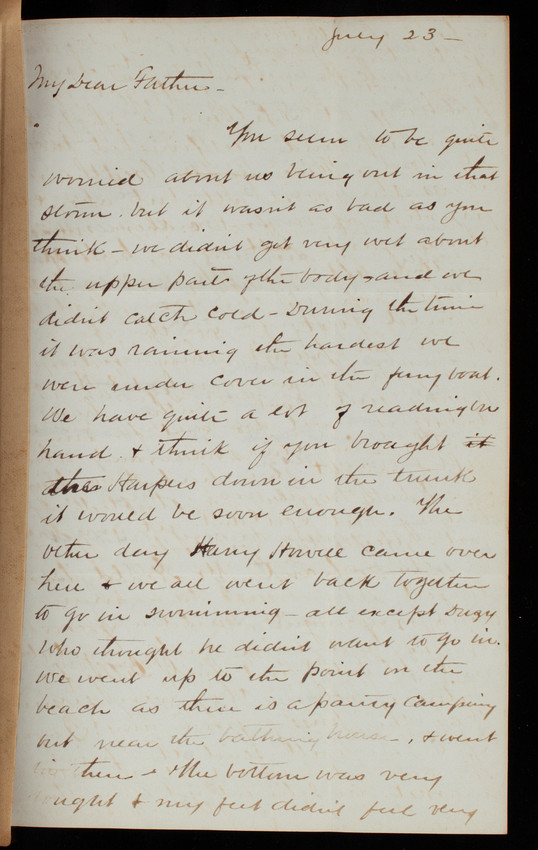 July 23 —
My Dear Father —
You seem to be quite
worried about us being out in that
storm. but it wasnt as bad as you
think — we didn't get very wet about
the upper parts of the body — and we
didn't catch cold — During the time
it was raining the hardest we
were under cover in the ferry boat.
We have quite a lot of reading on
hand & think if you brought it
the Harpers down in the trunk
it would be soon enough. The
other day Harry Howell came over
here & we all went back together
to go in swimming — all except Dazy
who thought he didn't want to go in.
We went up to the point on the
beach as there is a party camping
out near the bathing house, & went
in there & the bottom was very
ought & my feet didn't feel very